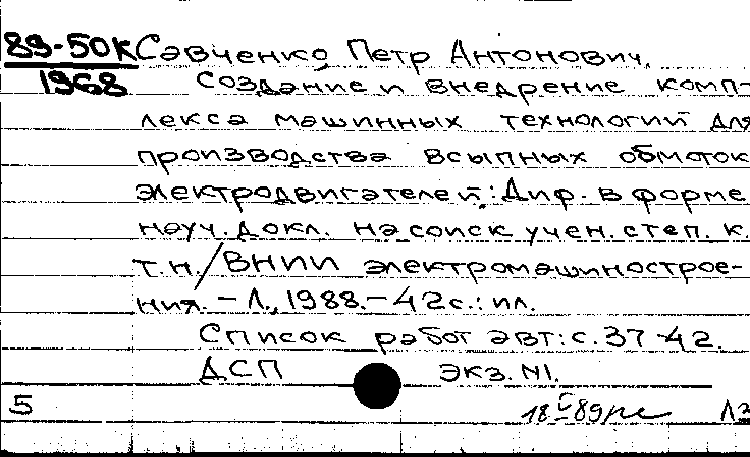 89-50К Савченко Петр Антонович.
1968 Создание и внедрение комп-
лекса машинных технологий для
производства всыпных обмоток
электродвигателей: Дир. в форме
науч. докл. на соиск учен. степ. к.
т.н. / ВНИИ электромашинострое-
ния. – Л., 1988. – 42 с.: ил.
Список работ авт: с. 37-42.
ДСП Экз. N1.
5 18 V 89 Лз